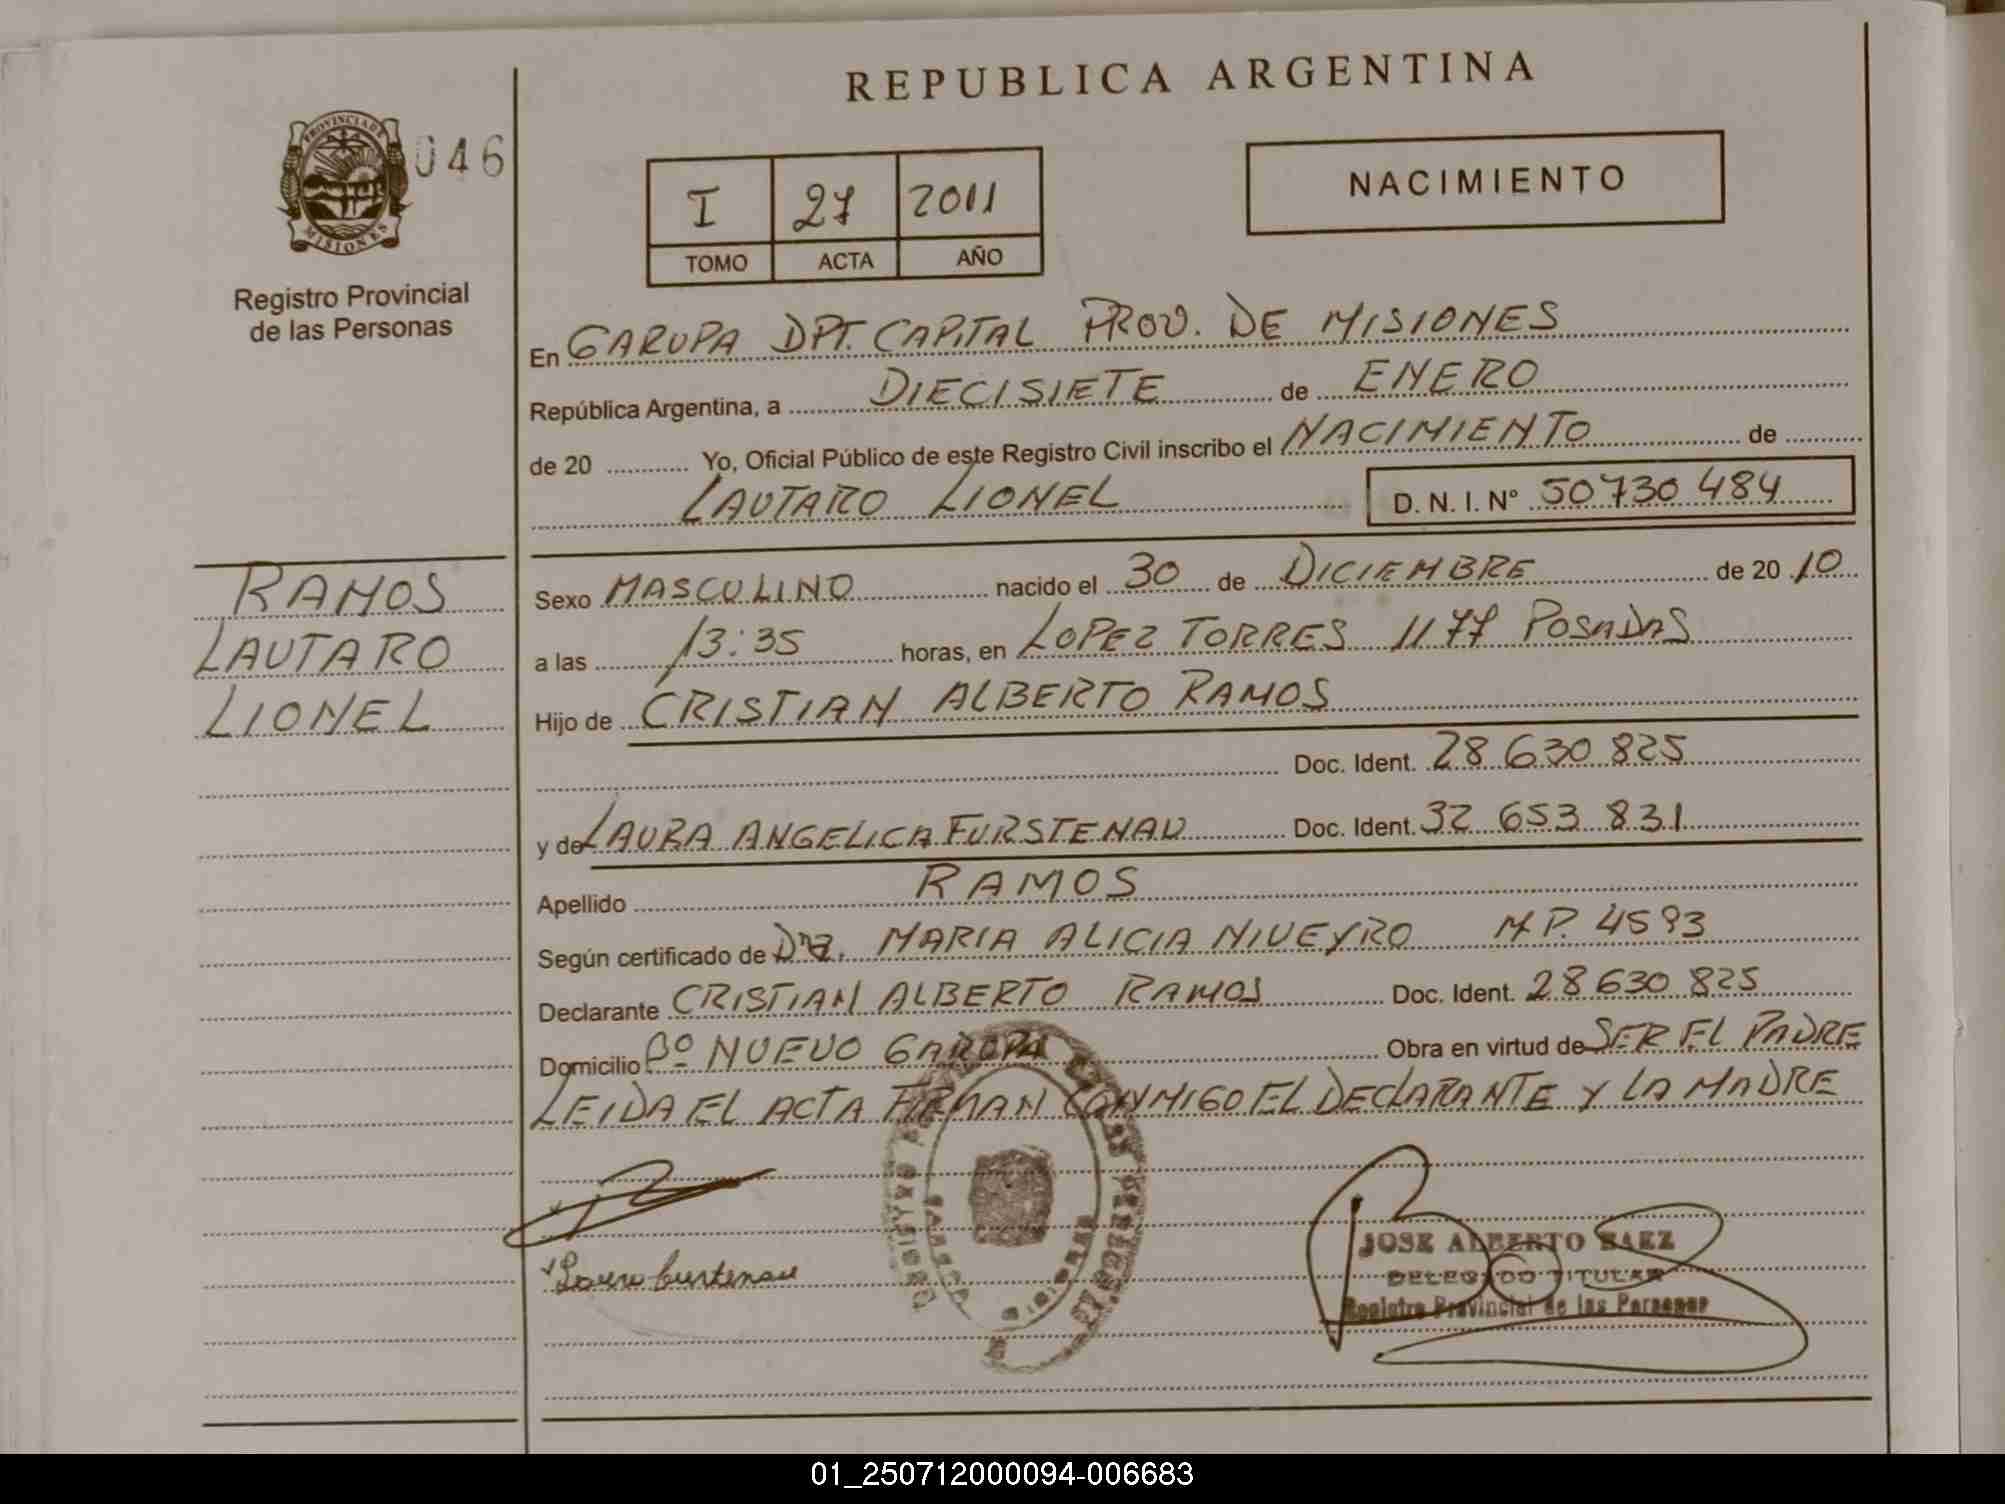 REPUBLICA ARGENTINA
PROVINCIA DE
MISIONES
046
Registro Provincial
de las Personas
I 27 2011
TOMO ACTA AÑO
NACIMIENTO
En GARUPA DPT. CAPITAL PROV. DE MISIONES
República Argentina, a DIECISIETE de ENERO
de 20 Yo, Oficial Público de este Registro Civil inscribo el NACIMIENTO de
LAUTARO LIONEL D. N. I. Nº 50 730 484
RAMOS
LAUTARO
LIONEL
Sexo MASCULINO nacido el 30 de DICIEMBRE de 20 10
a las 13:35 horas, en LOPEZ TORRES 1177 POSADAS
Hijo de CRISTIAN ALBERTO RAMOS
Doc. Ident. 28 630 825
y de LAURA ANGELICA FURSTENAU Doc. Ident. 32 653 831
Apellido RAMOS
Según certificado de Dra. MARIA ALICIA NIVEYRO M.P. 4593
Declarante CRISTIAN ALBERTO RAMOS Doc. Ident. 28 630 825
Domicilio Bº NUEVO GARUPA Obra en virtud de SER EL PADRE
LEIDA EL ACTA FIRMAN CONMIGO EL DECLARANTE Y LA MADRE
JOSE ALBERTO BAEZ
DELEGADO TITULAR
Registro Provincial de las Personas
01_250712000094-006683